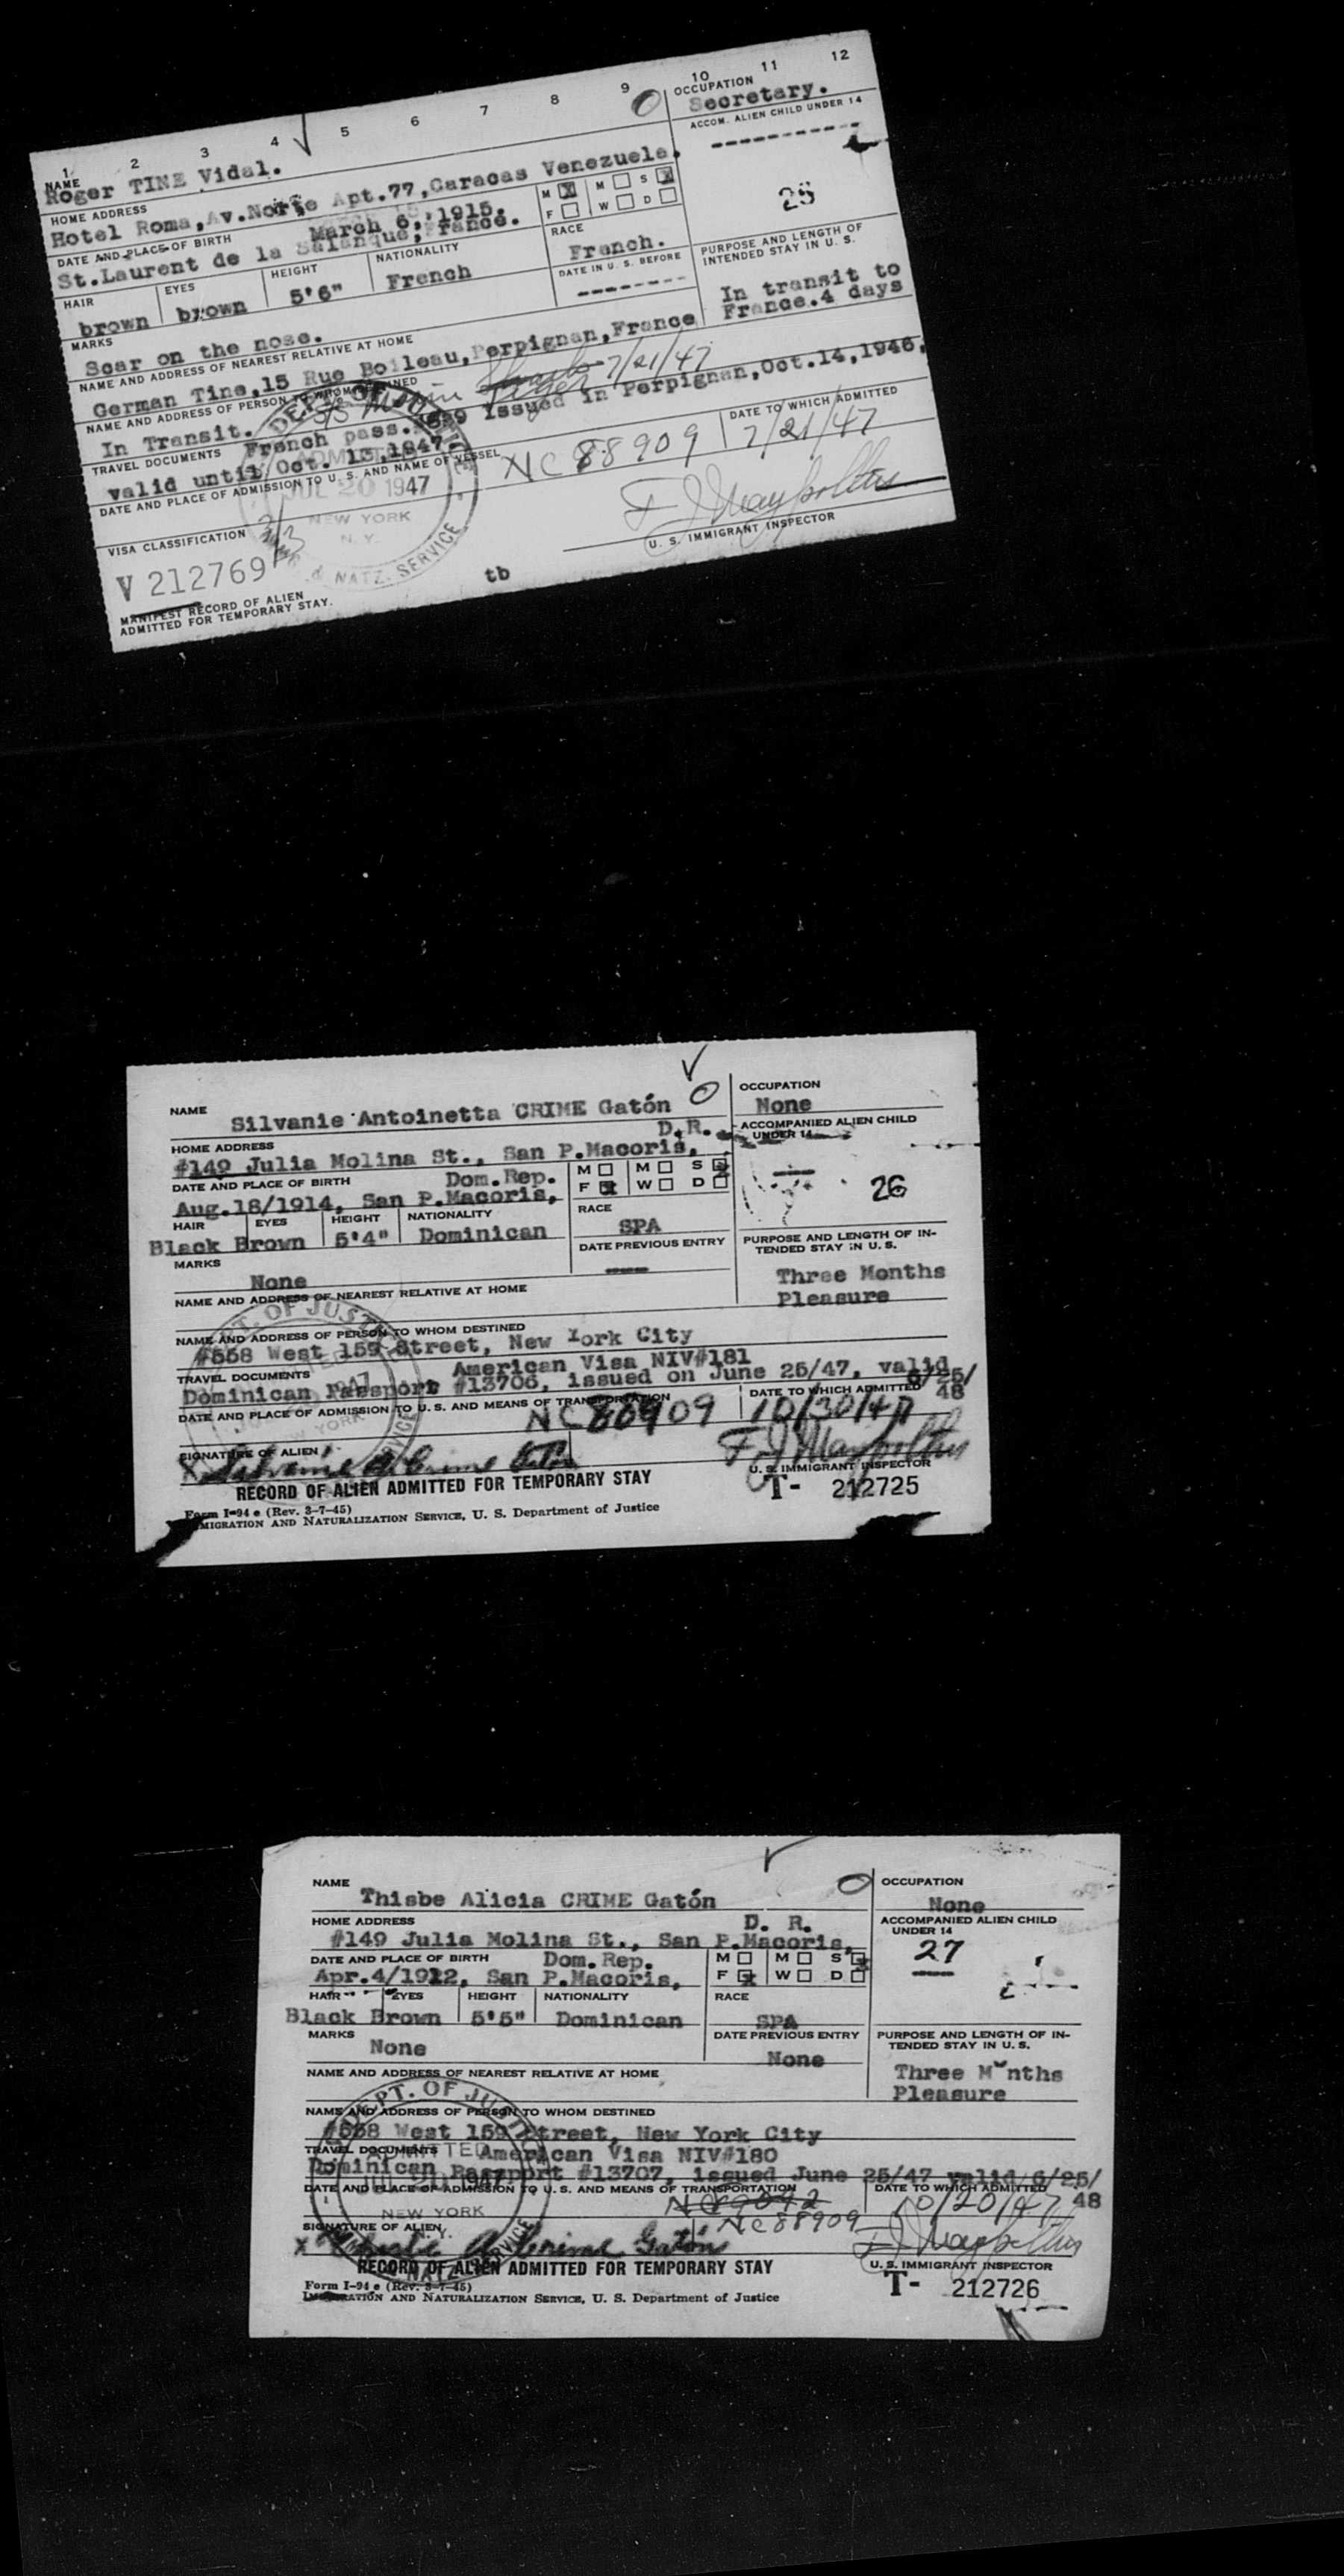 1 2 3 4 5 6 7 8 9 10 11 12
NAME
Roger TINE Vidal.
OCCUPATION
Secretary.
HOME ADDRESS
Hotel Roma,Av.Norte Apt.77,Caracas Venezuela.
ACCOM. ALIEN CHILD UNDER 14
----------
25
DATE AND PLACE OF BIRTH
March 6,1915.
St.Laurent de la Salanque,France.
M X M S X
F W D
RACE
French.
HAIR EYES HEIGHT NATIONALITY
brown brown 5'6" French
DATE IN U. S. BEFORE
--------
PURPOSE AND LENGTH OF
INTENDED STAY IN U. S.
In transit to
France.4 days
MARKS
Scar on the nose.
NAME AND ADDRESS OF NEAREST RELATIVE AT HOME
German Tine,15 Rue Boileau,Perpignan,France
NAME AND ADDRESS OF PERSON TO WHOM DESTINED
7/21/47
In Transit.
TRAVEL DOCUMENTS
French pass. issued in Perpignan,Oct.14,1946,
valid until Oct. 13,1947.
DATE AND PLACE OF ADMISSION TO U. S. AND NAME OF VESSEL
NC 88909
DATE TO WHICH ADMITTED
7/21/47
DEPT. OF JUSTICE
ADMITTED
JUL 20 1947
NEW YORK
N. Y.
NATZ. SERVICE
VISA CLASSIFICATION
U. S. IMMIGRANT INSPECTOR
V 212769
tb
MANIFEST RECORD OF ALIEN
ADMITTED FOR TEMPORARY STAY.
NAME
Silvanie Antoinetta CRIME Gatón
OCCUPATION
None
HOME ADDRESS
D.R.
#149 Julia Molina St., San P.Macoris,
ACCOMPANIED ALIEN CHILD
UNDER 14
26
DATE AND PLACE OF BIRTH
Dom.Rep.
Aug.18/1914, San P.Macoris,
M M S
F W D
RACE
SPA
HAIR EYES HEIGHT NATIONALITY
Black Brown 5'4" Dominican
DATE PREVIOUS ENTRY
----
PURPOSE AND LENGTH OF IN-
TENDED STAY IN U. S.
Three Months
Pleasure
MARKS
None
NAME AND ADDRESS OF NEAREST RELATIVE AT HOME
NAME AND ADDRESS OF PERSON TO WHOM DESTINED
#558 West 159 Street, New York City
TRAVEL DOCUMENTS
American Visa NIV#181
Dominican Passport #13706, issued on June 25/47, valid
6/25/
48
DATE AND PLACE OF ADMISSION TO U. S. AND MEANS OF TRANSPORTATION
NC 88909
DATE TO WHICH ADMITTED
SIGNATURE OF ALIEN
U. S. IMMIGRANT INSPECTOR
RECORD OF ALIEN ADMITTED FOR TEMPORARY STAY
T- 212725
Form I-94 e (Rev. 3-7-45)
IMMIGRATION AND NATURALIZATION SERVICE, U. S. Department of Justice
NAME
Thisbe Alicia CRIME Gatón
OCCUPATION
None
HOME ADDRESS
D. R.
#149 Julia Molina St., San P.Macoris,
ACCOMPANIED ALIEN CHILD
UNDER 14
27
DATE AND PLACE OF BIRTH
Dom.Rep.
Apr.4/1912, San P.Macoris,
M M S
F W D
HAIR EYES HEIGHT NATIONALITY
Black Brown 5'5" Dominican
RACE
SPA
MARKS
None
DATE PREVIOUS ENTRY
None
PURPOSE AND LENGTH OF IN-
TENDED STAY IN U. S.
Three Months
Pleasure
NAME AND ADDRESS OF NEAREST RELATIVE AT HOME
NAME AND ADDRESS OF PERSON TO WHOM DESTINED
#558 West 159 Street, New York City
TRAVEL DOCUMENTS
American Visa NIV#180
Dominican Passport #13707, issued June 25/47 valid 6/25/
48
DATE AND PLACE OF ADMISSION TO U. S. AND MEANS OF TRANSPORTATION
NC 88909
DATE TO WHICH ADMITTED
10/20/47
SIGNATURE OF ALIEN
U. S. IMMIGRANT INSPECTOR
RECORD OF ALIEN ADMITTED FOR TEMPORARY STAY
T- 212726
Form I-94 e (Rev. 3-7-45)
IMMIGRATION AND NATURALIZATION SERVICE, U. S. Department of Justice